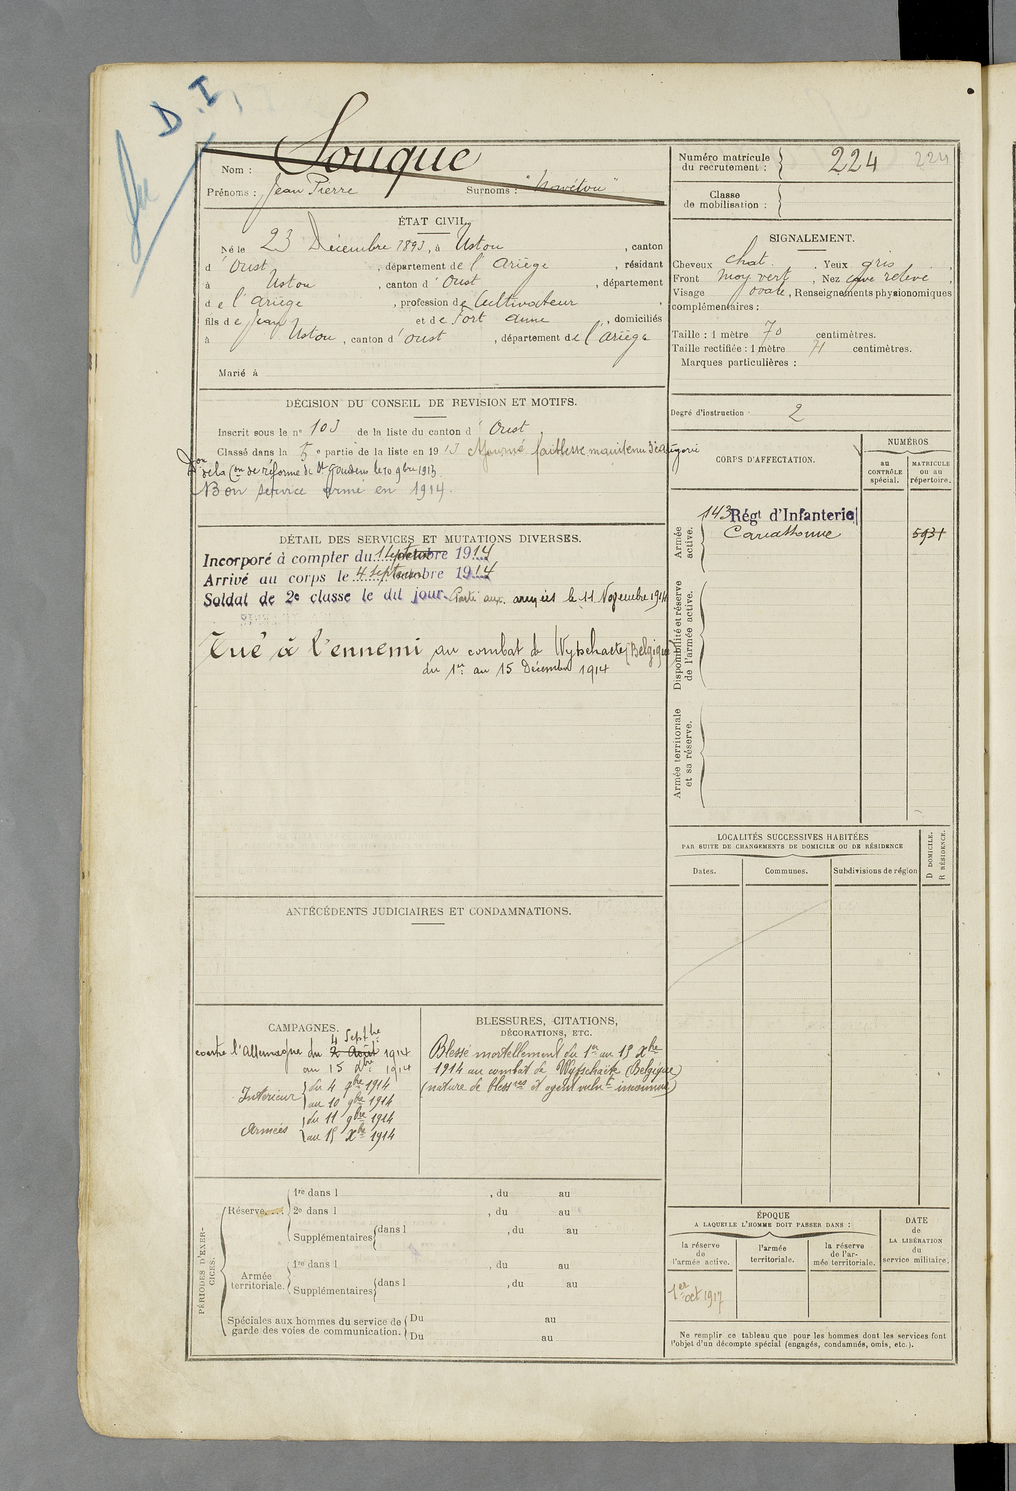 D.I,
Nom : Souque
Prénoms : Jean Pierre Surnoms :
Numéro matricule du recrutement : 224 224
Classe de mobilisation :
ÉTAT CIVIL.
Né le 23 Décembre 1893, à Ustou, canton
d'Oust, département de l'Ariège, résidant
à Ustou, canton d'Oust, département
de l'Ariège, profession de Cultivateur,
fils de Jean et de Sort Anne, domiciliés
à Ustou, canton d'Oust, département de l'Ariège
Marié à
SIGNALEMENT.
Cheveux chat., Yeux gris,
Front moy. vert, Nez cave relevé,
Visage ovale, Renseignements physionomiques
complémentaires :
Taille : 1 mètre 70 centimètres.
Taille rectifiée : 1 mètre 71 centimètres.
Marques particulières :
DÉCISION DU CONSEIL DE REVISION ET MOTIFS.
Inscrit sous le nº 103 de la liste du canton d'Oust
Classé dans la 5e partie de la liste en 1913 Ajourné faiblesse maintenu
Don de la Con de réforme de St Gaudens le 10 9bre 1913
Bon service armé en 1914.
Degré d'instruction : 2
CORPS D'AFFECTATION.
NUMÉROS
au CONTRÔLE spécial.
MATRICULE ou au répertoire.
Armée active.
143 Régt d'Infanterie
Carcassonne
5931
Disponibilité et réserve de l'armée active.
Armée territoriale et sa réserve.
DÉTAIL DES SERVICES ET MUTATIONS DIVERSES.
Incorporé à compter du octobre 1914
Arrivé au corps le 4 septembre 1914
Soldat de 2e classe le dit jour. Parti aux armées le 11 Novembre 1914
Tué à l'ennemi au combat de Wytschaete (Belgique)
du 1er au 15 Décembre 1914
LOCALITÉS SUCCESSIVES HABITÉES
PAR SUITE DE CHANGEMENTS DE DOMICILE OU DE RÉSIDENCE
Dates.
Communes.
Subdivisions de région
D DOMICILE.
R RÉSIDENCE.
ANTÉCÉDENTS JUDICIAIRES ET CONDAMNATIONS.
CAMPAGNES.
4 Septbe
contre l'Allemagne du 2 Août 1914
au 15 Xbre 1914
Intérieur du 4 9bre 1914
au 10 9bre 1914
Armées du 11 9bre 1914
au 15 Xbre 1914
BLESSURES, CITATIONS,
DÉCORATIONS, ETC.
Blessé mortellement du 1er au 15 Xbre
1914 au combat de Wytschaete (Belgique)
(nature de blessres et agent vulnt inconnus)
PÉRIODES D'EXERCICES.
Réserve....
1re dans l , du au
2e dans l , du au
Supplémentaires dans l , du au
Armée territoriale.
1re dans l , du au
Supplémentaires dans l , du au
Spéciales aux hommes du service de garde des voies de communication.
Du au
Du au
ÉPOQUE
A LAQUELLE L'HOMME DOIT PASSER DANS :
la réserve de l'armée active.
l'armée territoriale.
la réserve de l'armée territoriale.
DATE de LA LIBÉRATION du service militaire.
1er oct 1917
Ne remplir ce tableau que pour les hommes dont les services font
l'objet d'un décompte spécial (engagés, condamnés, omis, etc.).